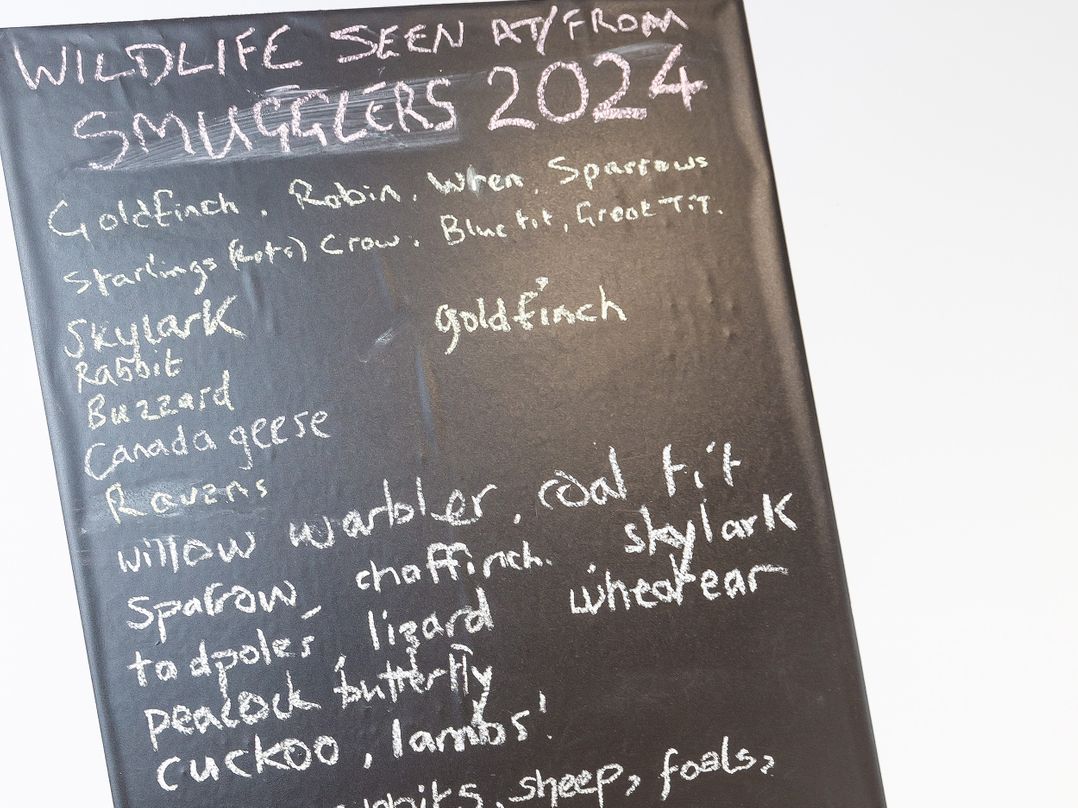 WILDLIFE SEEN AT/FROM
SMUGGLERS 2024
Goldfinch. Robin. Wren. Sparrows
Starlings (lots) Crow. Blue tit, Great TiT.
Skylark goldfinch
Rabbit
Buzzard
Canada geese
Ravens
willow warbler, coal tit
sparow, chaffinch. skylark
todpoles, lizard wheatear
peacock butterfly
cuckoo, lambs!
sheep, foals,